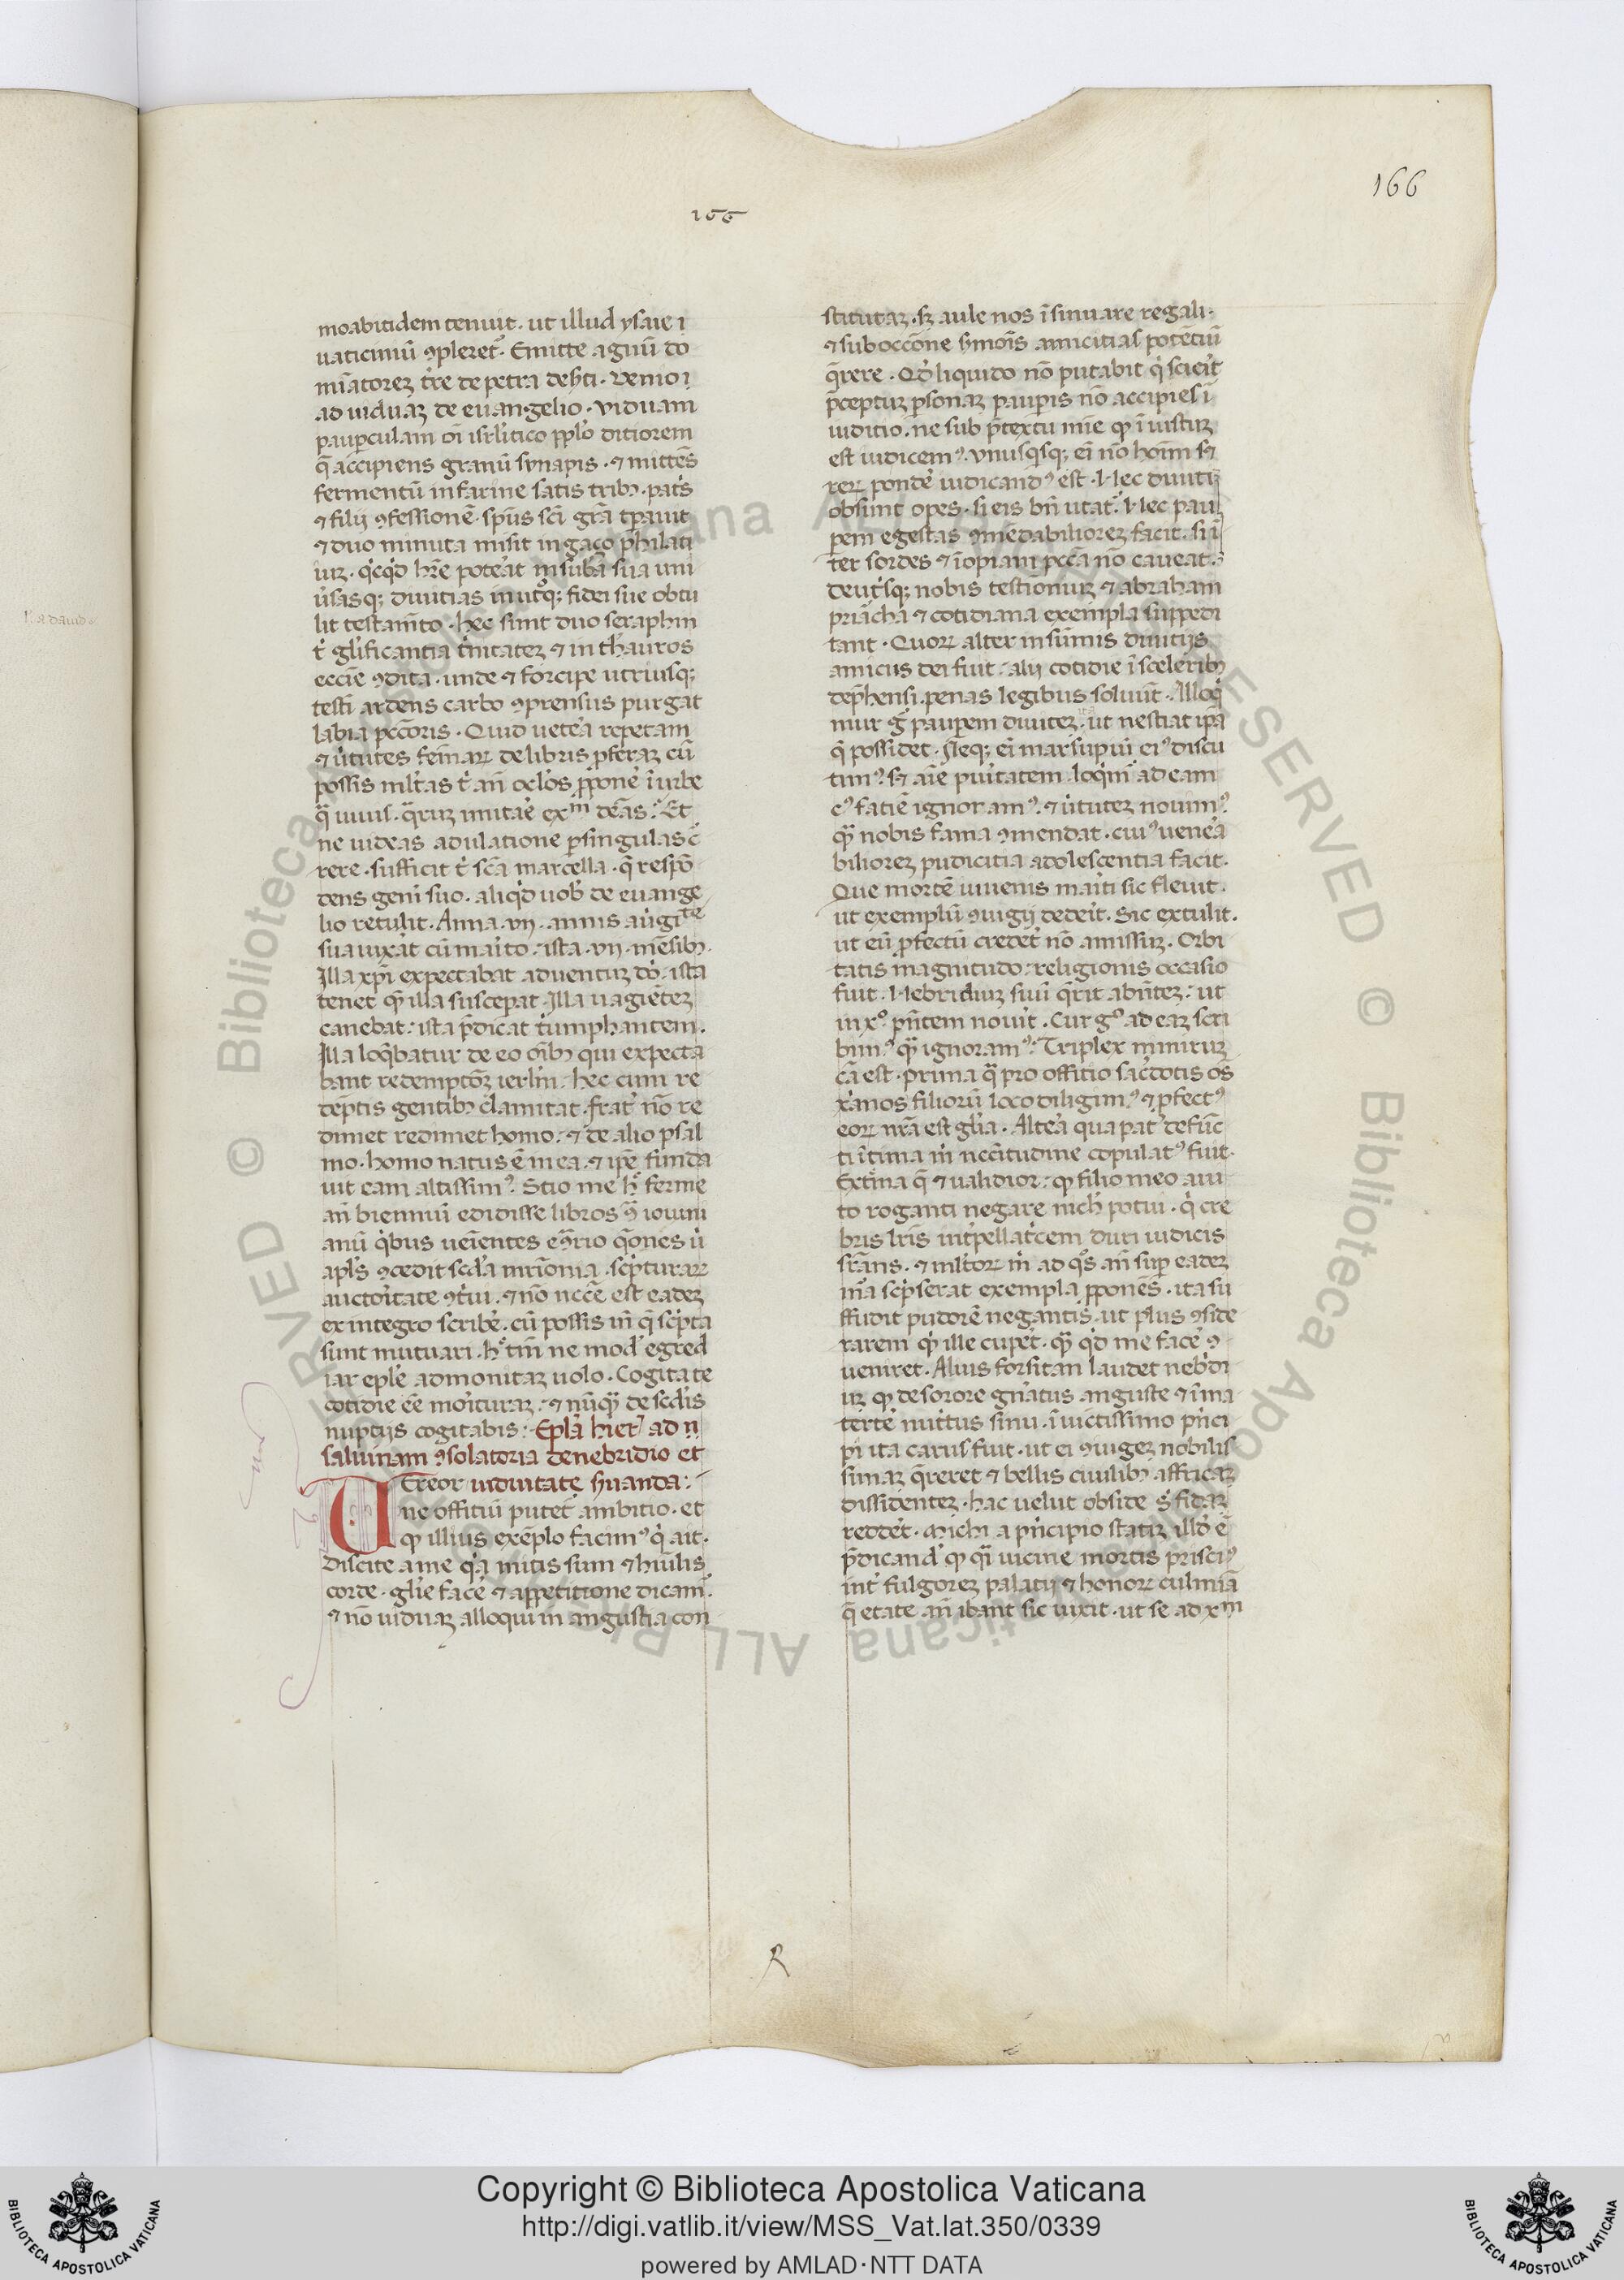 166
166
moabitidem tenuit. ut illud ysaie ı
uaticiniũ ꝯpleret᷑. Emitte agnũ do
mĩatoreꝫ tr̃e de petra deẜti. Venio ı
ad uiduaꝫ de euangelio. viduam
paup̱culam oĩ isrl̃itico pp̱lo ditiorem
q̃ accipiens granũ synapis. ⁊ mittẽs
fermentũ in farine satis tribꝫ. patͥs
⁊ filij ꝯfessionẽ. sp̃us sc̃i gr̃a tp̱auit
⁊ duo minuta misit in gaço philati
uꝫ. qͥcqͥd hr̃e poterat in sub̃a sua uni
u̾sasqꝫ diuitias in utͦqꝫ fidei sue obtu
lit testam̃to. hec sunt duo seraphin
t̾ gl̃ificantia tͥnitateꝫ ⁊ in thauros
eccl̃ie ꝯdita. unde ⁊ forcipe utriusqꝫ
test̃i ardens carbo ꝯprensus purgat
labia pcc̃oris. Quid uetera repetam
⁊ uͥtutes femĩaꝝ de libris ꝓferaꝫ cũ
possis ml̃tas t̾ añ oc̃los ꝓpone͛ ĩ urbe
qͣ uiuis. qͣruꝫ imitari exᵐ de͛as. Et
ne uidear adulatione ꝑ singulas c̃
rere. sufficit t̾ sc̃a marcella. q̃ respõ
dens geni suo. aliqͥd nob̾ de euange
lio retulit. Anna .vij. annis a uͥgĩte
sua uixͣat cũ marito. ista .vij. mẽsibꝫ.
Illa xp̃i expectabat aduentuꝫ do. ista
tenet qͣ illa suscep̱at. Illa uagie͛teꝫ
canebat. ista p̃dicat tͥumphantem.
Illa loqͣbatur de eo oĩbꝫ qui expecta
bant redemptõꝫ ierlm̃. hec cum re
dẽptis gentibꝫ clamitat. frat̾ nõ re
dimet redimet homo. ⁊ de alio psal
mo. homo natus ẽ in ea. ⁊ ip̃e funda
uit eam altissimꝰ. Scio me hͦ ferme
añ bienniũ edidisse libros ꝯͣ iouini
anũ qͥbus uenientes eꝯͣrio q̃ones u̾
apl̃s ꝯcedit scd̃a mr̃imonia. scͥpturaꝝ
auctoͥtate ꝯtͥui. ⁊ nõ ncc̃e est eadeꝫ
ex integro scribe͛. cũ possis in̾ q̃ scͥpta
sunt mutuari. hͦ tm̃ ne mod̾ egred
iar epl̃e admonitaꝫ uolo. Cogita te
cotidie ẽe moͥturaꝫ. ⁊ nũqͣ de scd̃is
nuptijs cogitabis. Epl̃a hier̾ ad
saluinam ꝯsolatoria de nebridio et
Uereor uiduitate ẜuanda:
ne offitiũ putet᷑ ambitio. et
ꝙ illius exẽplo facimꝰ qͥ ait.
Discite a me qͥa mitis sum ⁊ hũilis
corde. gl̃ie face͛ ⁊ appetitione dicam̃.
⁊ nõ uiduaꝫ alloqui in angustia con
stitutaꝫ. sꝫ aule nos ĩsinuare regali.
⁊ sub occõne ẜmoĩs amicitias potẽtiũ
q̃rere. Qd̾ liquido nõ putabit qͥ scierit
p̃ceptuꝫ ꝑsonaꝫ pauꝑis nõ accipies ĩ
iuditio. ne sub p̃textu mĩe ꝙ ĩiustuꝫ
est iudicemꝰ. vnusqͥsqꝫ eĩ nõ hoĩm sꝫ
reꝝ ponde͛ iudicandꝰ est. Nec diuiti
obsunt opes. si eis bñ utat᷑. Nec pau
ꝑem egestas ꝯmẽdabilioreꝫ facit. si ĩ
ter sordes ⁊ ĩopiam pcc̃a nõ caueat.
De utͥsqꝫ nobis testĩoniuꝫ ⁊ abraham
pr̃iarcha ⁊ cotidiana exempla suppedi
tant. Quoꝝ alter in sũmis diuitijs
amicus dei fuit. alij cotidie ĩ sceleribꝫ
dep̃hensi. penas legibus soluũt. Alloqͣ
mur gͦ pauꝑem diuiteꝫ. ut nesciat ip̃a
qͥ possidet. Neqꝫ eĩ marsupiũ eiꝰ discu
timꝰ. sꝫ aĩe puritatem. loqͥm᷑ ad eam
cꝰ fatiẽ ignoramꝰ. ⁊ uͥtuteꝫ nouimꝰ
qͣ nobis fama ꝯmendat. cuiꝰ uenera
biliorem pudicitia adolescentia facit.
Que mortẽ iuuenis maͥti sic fleuit.
ut exemplũ ꝯiugij dederit. Sic extulit.
ut eũ ꝓfectũ crederet nõ amissuꝫ. Orbi
tatis magnitudo: religionis occasio
fuit. Nebridiuꝫ suũ q̃rit abñteꝫ: ut
in xͦ. pñtem nouerit. Cur gͦ ad eaꝫ scri
bimꝰ qͣ ignoramꝰ. Triplex nimiruꝫ
cã est. prima qͣ pro offitio sac̃dotis oẽs
xͥanos filiorũ loco diligimꝰ. ⁊ ꝓfectꝰ
eoꝝ nr̃a est gl̃ia. Altera qua pat̾ defũc
ti ĩtima m̾ nccͥtudine copulatꝰ fuit.
Extͥma q̃ ⁊ ualidior. ꝙ filio meo aui
to roganti negare nich̾ potui. qͥ cre
bris lr̃is int̾pellatͥcem duri iudicis
sr̃ans. ⁊ ml̃toꝝ m̾ ad qͦs añ suꝑ eadeꝫ
mã scͥpserat exempla ꝓponẽs. ita su
ffudit pudorẽ negantis. ut plus ꝯside
rarem qͥ ille cuperet. qͣ qͥd me face͛ ꝯ
ueniret. Alius forsitan laudet nebͥdi
uꝫ ꝙ de sorore gñatus anguste ⁊ ĩma
tertẽ nutͥtus sinu. ĩuictissimo pͥnci
pi ita carus fuit. ut ei ꝯiugeꝫ nobilis
simaꝫ q̃reret ⁊ bellis ciuilibꝫ affricaꝫ
dissidenteꝫ. hac uelut obside sͥ fidaꝫ
redderet. Michi a pͥncipio statiꝫ illd̾ ẽ
p̃dicand̾ ꝙ qͣi uicine mortis prisciꝰ
int̾ fulgoreꝫ palatij ⁊ honoꝝ culmĩa
q̃ etate añ ibant sic uixit. ut se ad xᵐ
R
Copyright © Biblioteca Apostolica Vaticana
http://digi.vatlib.it/view/MSS_Vat.lat.350/0339
powered by AMLAD·NTT DATA